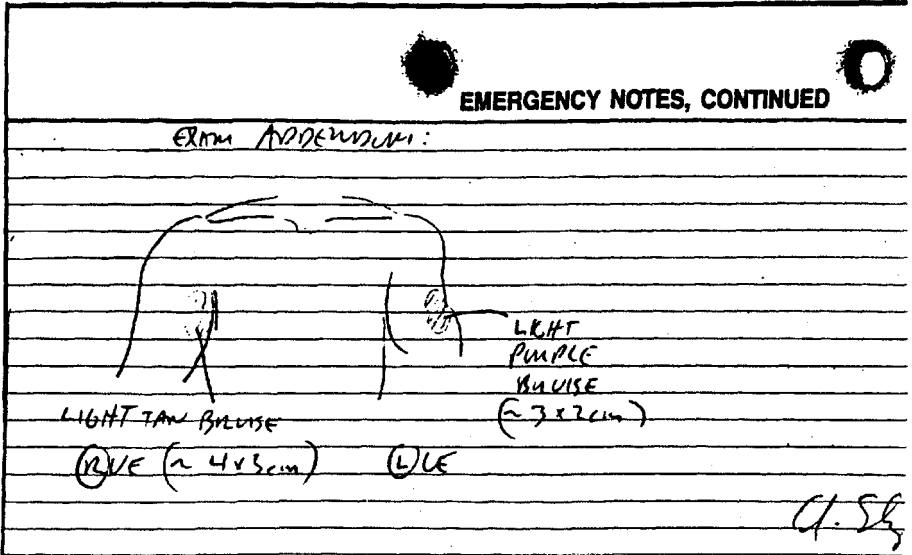 EMERGENCY NOTES, CONTINUED
EXAM ADDENDUM:
LIGHT
PURPLE
BRUISE
(~3x2cm)
LIGHT TAN BRUISE
(R)UE (~ 4x3cm)
(L)UE